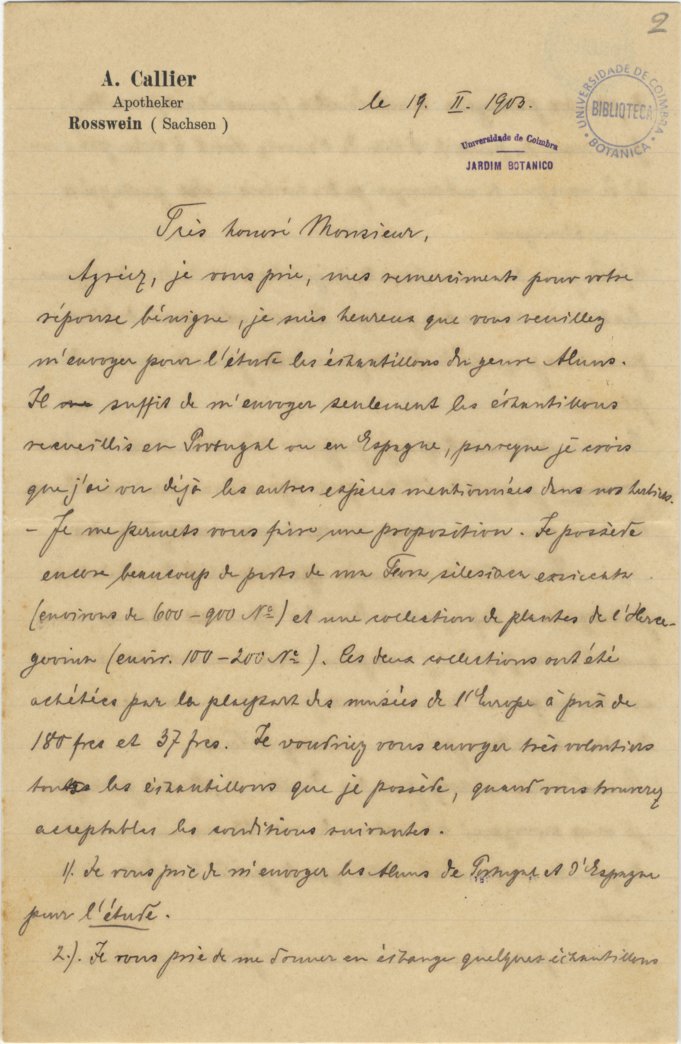 2
A. Callier
Apotheker
Rosswein ( Sachsen )
le 19. II. 1903.
UNIVERSIDADE DE COIMBRA
BIBLIOTECA
BOTANICA
Universidade de Coimbra
JARDIM BOTANICO
Très honoré Monsieur,
Agréez, je vous prie, mes remerciments pour votre
réponse bénigne, je suis heureux que vous veuillez
m'envoyer pour l'étude les échantillons du genre Alnus.
Il suffit de m'envoyer seulement les échantillons
recueillis en Portugal ou en Espagne, parceque je crois
que j'ai vu déjà les autres espèces mentionnées dans nos herbiers.
– Je me permets vous faire une proposition. Je possède
encore beaucoup de parts de ma Flora silesiaca exsiccata
(environs de 600 – 900 No) et une collection de plantes de l'Herce-
govina (envir. 100 – 200 No). Ces deux collections ont été
achétées par la pluspart des musées de l'Europe à prix de
180 frcs et 37 frcs. Je voudriez vous envoyer très volontiers
touts les échantillons que je possède, quand vous trouverez
acceptables les conditions suivantes.
1). Je vous prie de m'envoyer les Alnus de Portugal et d'Espagne
pour l'étude.
2.). Je vous prie de me donner en échange quelques échantillons